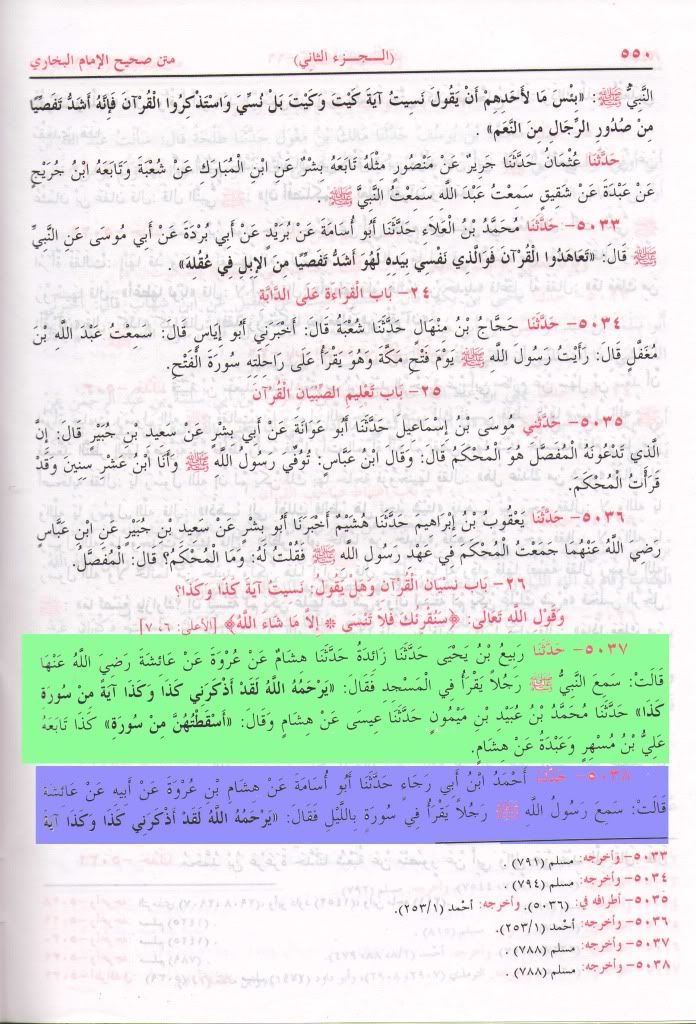 ٥٥٠ (الـجـزء الثاني) متن صحيح الإمام البخاري
النَّبِيُّ ﷺ: «بِئْسَ مَا لأَحَدِهِمْ أَنْ يَقُولَ نَسِيتُ آيَةَ كَيْتَ وَكَيْتَ بَلْ نُسِّيَ وَاسْتَذْكِرُوا الْقُرْآنَ فَإِنَّهُ أَشَدُّ تَفَصِّيًا
مِنْ صُدُورِ الرِّجَالِ مِنَ النَّعَمِ» .
حَدَّثَنَا عُثْمَانُ حَدَّثَنَا جَرِيرٌ عَنْ مَنْصُورٍ مِثْلَهُ تَابَعَهُ بِشْرٌ عَنِ ابْنِ الْمُبَارَكِ عَنْ شُعْبَةَ وَتَابَعَهُ ابْنُ جُرَيْجٍ
عَنْ عَبْدَةَ عَنْ شَقِيقٍ سَمِعْتُ عَبْدَ اللَّهِ سَمِعْتُ النَّبِيَّ ﷺ .
٥٠٣٣- حَدَّثَنَا مُحَمَّدُ بْنُ الْعَلاَءِ حَدَّثَنَا أَبُو أُسَامَةَ عَنْ بُرَيْدٍ عَنْ أَبِي بُرْدَةَ عَنْ أَبِي مُوسَى عَنِ النَّبِيِّ
ﷺ قَالَ: «تَعَاهَدُوا الْقُرْآنَ فَوَالَّذِي نَفْسِي بِيَدِهِ لَهُوَ أَشَدُّ تَفَصِّيًا مِنَ الإِبِلِ فِي عُقُلِهَ» .
٢٤- بَابُ الْقِرَاءَةِ عَلَى الدَّابَّةِ
٥٠٣٤- حَدَّثَنَا حَجَّاجُ بْنُ مِنْهَالٍ حَدَّثَنَا شُعْبَةُ قَالَ: أَخْبَرَنِي أَبُو إِيَاسٍ قَالَ: سَمِعْتُ عَبْدَ اللَّهِ بْنَ
مُغَفَّلٍ قَالَ: رَأَيْتُ رَسُولَ اللَّهِ ﷺ يَوْمَ فَتْحِ مَكَّةَ وَهُوَ يَقْرَأُ عَلَى رَاحِلَتِهِ سُورَةَ الْفَتْحِ.
٢٥- بَابُ تَعْلِيمِ الصِّبْيَانِ الْقُرْآنَ
٥٠٣٥- حَدَّثَنِي مُوسَى بْنُ إِسْمَاعِيلَ حَدَّثَنَا أَبُو عَوَانَةَ عَنْ أَبِي بِشْرٍ عَنْ سَعِيدِ بْنِ جُبَيْرٍ قَالَ: إِنَّ
الَّذِي تَدْعُونَهُ الْمُفَصَّلَ هُوَ الْمُحْكَمُ قَالَ: وَقَالَ ابْنُ عَبَّاسٍ: تُوُفِّيَ رَسُولُ اللَّهِ ﷺ وَأَنَا ابْنُ عَشْرِ سِنِينَ وَقَدْ
قَرَأْتُ الْمُحْكَمَ.
٥٠٣٦- حَدَّثَنَا يَعْقُوبُ بْنُ إِبْرَاهِيمَ حَدَّثَنَا هُشَيْمٌ أَخْبَرَنَا أَبُو بِشْرٍ عَنْ سَعِيدِ بْنِ جُبَيْرٍ عَنِ ابْنِ عَبَّاسٍ
رَضِيَ اللَّهُ عَنْهُمَا جَمَعْتُ الْمُحْكَمَ فِي عَهْدِ رَسُولِ اللَّهِ ﷺ فَقُلْتُ لَهُ: وَمَا الْمُحْكَمُ؟ قَالَ: الْمُفَصَّلُ.
٢٦- بَابُ نِسْيَانِ الْقُرْآنِ وَهَلْ يَقُولُ: نَسِيتُ آيَةَ كَذَا وَكَذَا؟
وَقَوْلِ اللَّهِ تَعَالَى: ﴿سَنُقْرِئُكَ فَلاَ تَنْسَى * إِلاَّ مَا شَاءَ اللَّهُ﴾ [الأعلى: ٦-٧]
٥٠٣٧- حَدَّثَنَا رَبِيعُ بْنُ يَحْيَى حَدَّثَنَا زَائِدَةُ حَدَّثَنَا هِشَامٌ عَنْ عُرْوَةَ عَنْ عَائِشَةَ رَضِيَ اللَّهُ عَنْهَا
قَالَتْ: سَمِعَ النَّبِيُّ ﷺ رَجُلاً يَقْرَأُ فِي الْمَسْجِدِ فَقَالَ: «يَرْحَمُهُ اللَّهُ لَقَدْ أَذْكَرَنِي كَذَا وَكَذَا آيَةً مِنْ سُورَةِ
كَذَا» حَدَّثَنَا مُحَمَّدُ بْنُ عُبَيْدِ بْنِ مَيْمُونٍ حَدَّثَنَا عِيسَى عَنْ هِشَامٍ وَقَالَ: «أَسْقَطْتُهُنَّ مِنْ سُورَةِ» كَذَا تَابَعَهُ
عَلِيُّ بْنُ مُسْهِرٍ وَعَبْدَةُ عَنْ هِشَامٍ.
٥٠٣٨- حَدَّثَنَا أَحْمَدُ ابْنُ أَبِي رَجَاءٍ حَدَّثَنَا أَبُو أُسَامَةَ عَنْ هِشَامِ بْنِ عُرْوَةَ عَنْ أَبِيهِ عَنْ عَائِشَةَ
قَالَتْ: سَمِعَ رَسُولُ اللَّهِ ﷺ رَجُلاً يَقْرَأُ فِي سُورَةٍ بِاللَّيْلِ فَقَالَ: «يَرْحَمُهُ اللَّهُ لَقَدْ أَذْكَرَنِي كَذَا وَكَذَا آيَةً
٥٠٣٣- وأخرجه: مسلم (٧٩١) .
٥٠٣٤- وأخرجه: مسلم (٧٩٤) .
٥٠٣٥- أطرافه في: (٥٠٣٦). وأخرجه: أحمد (٢٥٣/١).
٥٠٣٦- وأخرجه: أحمد (٢٥٣/١).
٥٠٣٧- وأخرجه: مسلم (٧٨٨) .
٥٠٣٨- وأخرجه: مسلم (٧٨٨) .